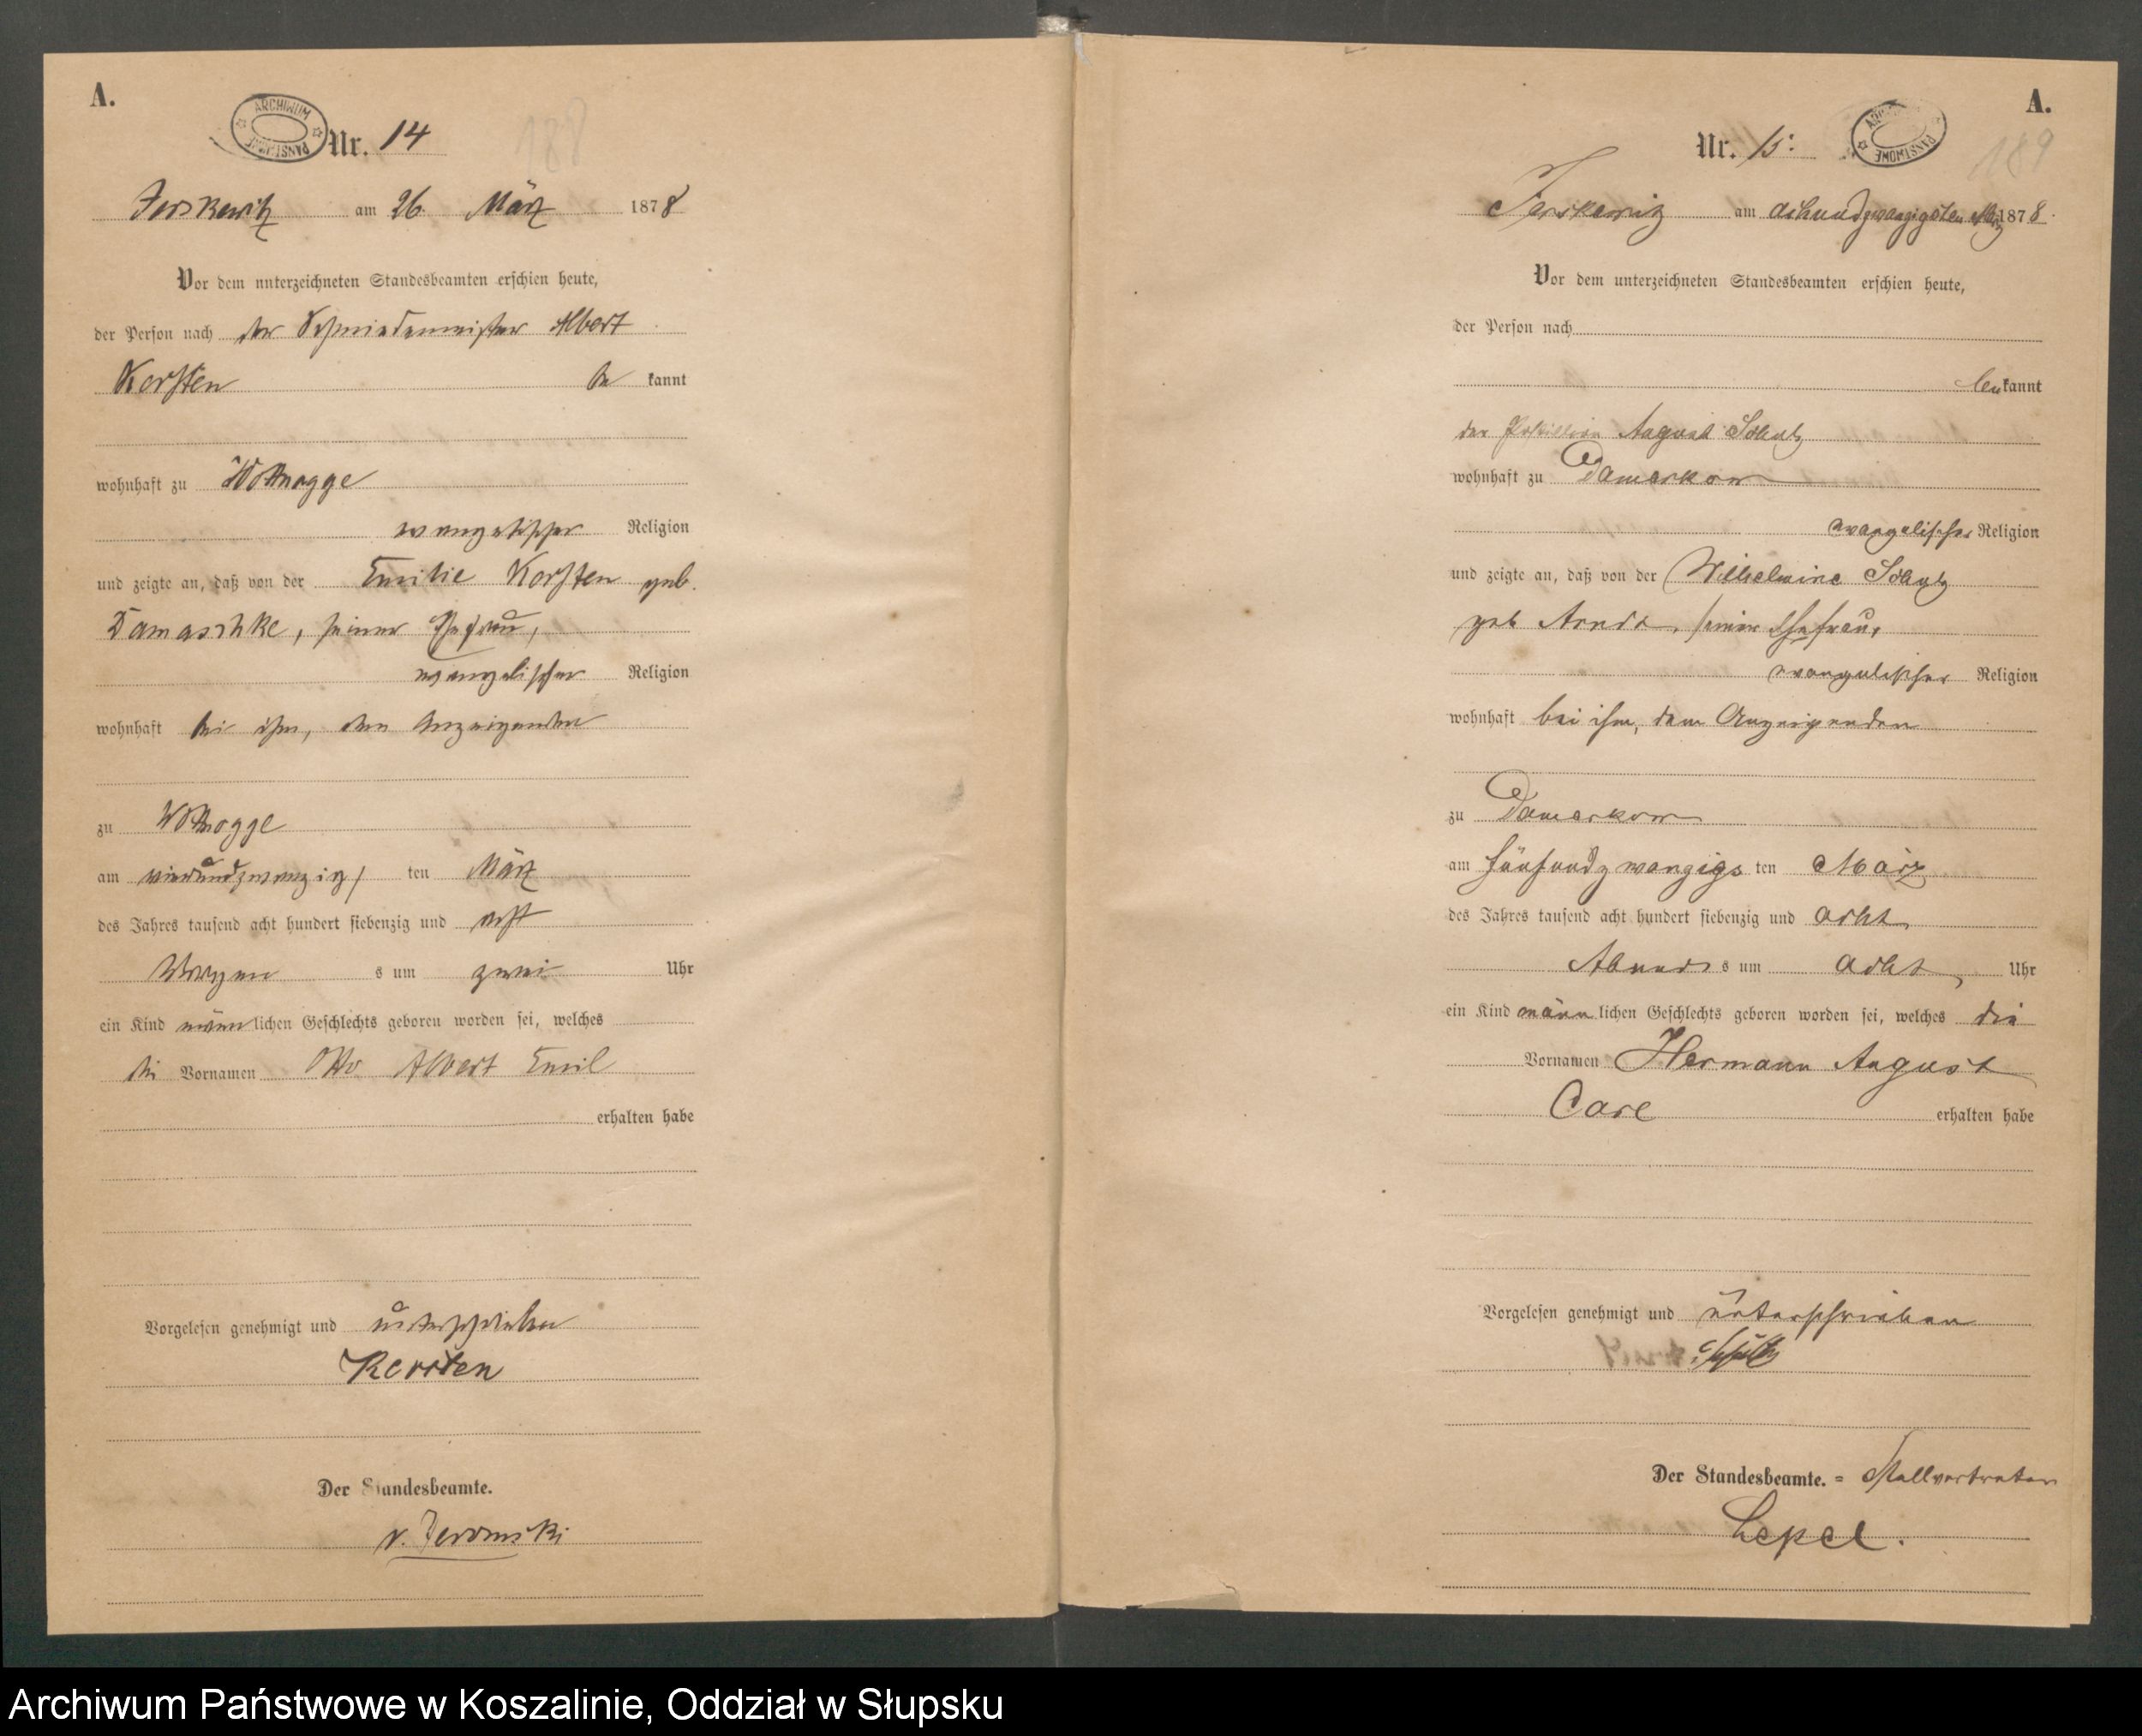 A.
ARCHIWUM PAŃSTWOWE
Nr. 14
188
Jerskewitz am 26. März 1878
Vor dem unterzeichneten Standesbeamten erschien heute,
der Person nach der Schmiedemeister Albert
Kersten be kannt
wohnhaft zu Wottnogge
evangelischer Religion
und zeigte an, daß von der Emilie Kersten geb.
Damaschke, seiner Ehefrau,
evangelischer Religion
wohnhaft bei ihm, dem Anzeigenden
zu Wottnogge
am vierundzwanzigs ten März
des Jahres tausend acht hundert siebenzig und acht
Morgen s um zwei Uhr
ein Kind männlichen Geschlechts geboren worden sei, welches
die Vornamen Otto Albert Emil
erhalten habe
Vorgelesen genehmigt und unterschrieben
Kersten
Der Standesbeamte.
v. Jeromski
A.
Nr. 15.
ARCHIWUM PAŃSTWOWE
189
Jerskewitz am achtundzwanzigsten März 1878.
Vor dem unterzeichneten Standesbeamten erschien heute,
der Person nach
bekannt
der August Schulz
wohnhaft zu Damerkow
evangelischer Religion
und zeigte an, daß von der Wilhelmine Schulz
geb Arndt, seiner Ehefrau,
evangelischer Religion
wohnhaft bei ihm, dem Anzeigenden
zu Damerkow
am fünfundzwanzigs ten März
des Jahres tausend acht hundert siebenzig und acht
Abends um acht Uhr
ein Kind männlichen Geschlechts geboren worden sei, welches die
Vornamen Hermann August
Carl erhalten habe
Vorgelesen genehmigt und unterschrieben
Der Standesbeamte. = Stellvertreter
Lepel.
Archiwum Państwowe w Koszalinie, Oddział w Słupsku